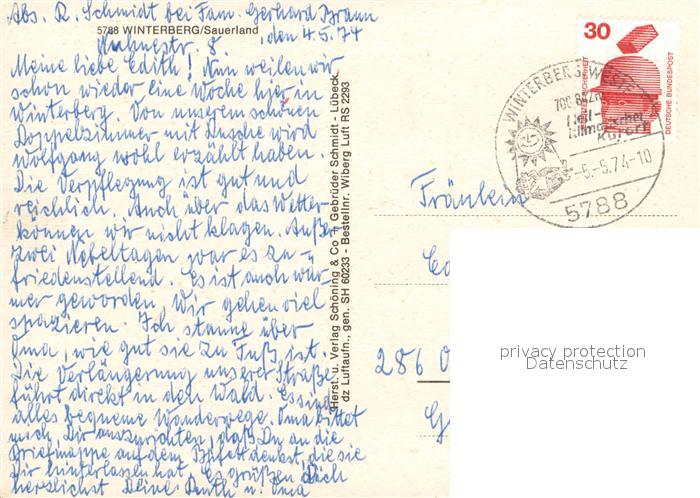 Abs. R. Schmidt bei Fam. Gerhard Braun
5788 WINTERBERG/Sauerland
str. 8. den 4.5.74
Meine liebe Edith! Nun weilen wir
schon wieder eine Woche hier in
Winterberg. Von unserem schönen
Doppelzimmer mit Dusche wird
Wolfgang wohl erzählt haben.
Die Verpflegung ist gut und
reichlich. Auch über das Wetter
können wir nicht klagen. Außer
zwei Nebeltagen war es zu-
friedenstellend. Es ist auch wär-
mer geworden. Wir gehen viel
spazieren. Ich staune über
Oma, wie gut sie zu Fuß ist.
Die Verlängerung unserer Straße
führt direkt in den Wald. Es sind
alles bequeme Wanderwege. Oma bittet
mich, Dir auszurichten, daß Du an die
Briefmappe auf dem Büfett denkst, die sie
Dir hinterlassen hat. Es grüßen Dich
herzlichst Deine Ruth u. Oma
Herst. u. Verlag Schöning & Co + Gebrüder Schmidt - Lübeck
dz Luftaufn., gen. SH 60233 - Bestellnr. Wiberg Luft RS 2293
30
DEUTSCHE BUNDESPOST
WINTERBERG, WESTF
700-842m
Heil-
klimatischer
Kurort
-6.-5.74-10
5788
Fräulein
286 O
privacy protection
Datenschutz